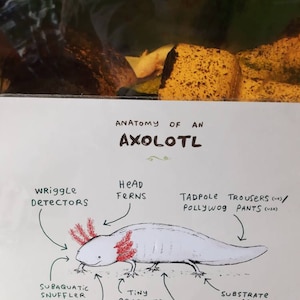 ANATOMY OF AN
AXOLOTL
WRIGGLE
DETECTORS
HEAD
FERNS
TADPOLE TROUSERS (UK)/
POLLYWOG PANTS (USA)
SUBAQUATIC
SNUFFLER
TINY
SUBSTRATE